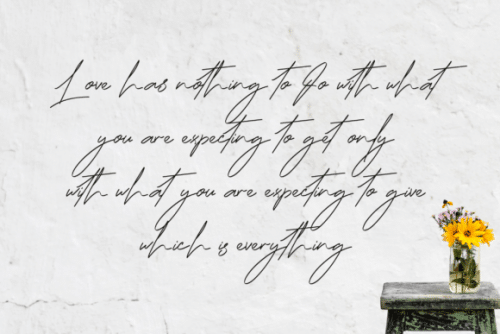 Love has nothing to do with what
you are expecting to get only
with what you are expecting to give
which is everything